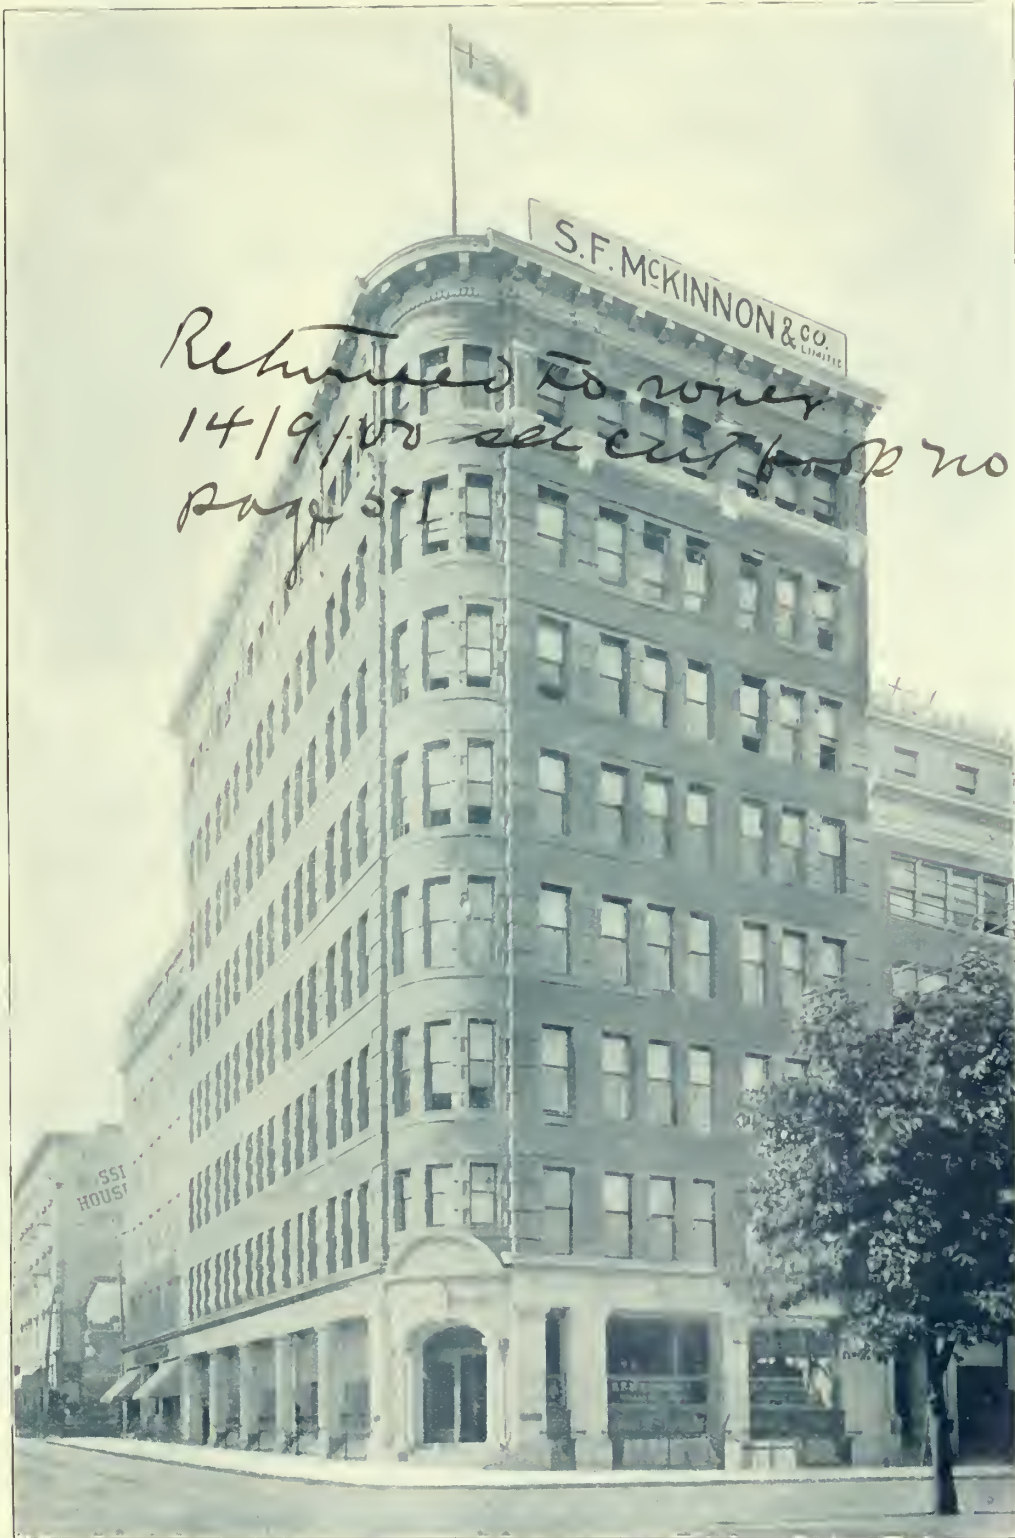 S.F. McKINNON & CO.
LIMITED
Returned to owner
14/9/00 see cut book no
page 51
SSI
HOUSE